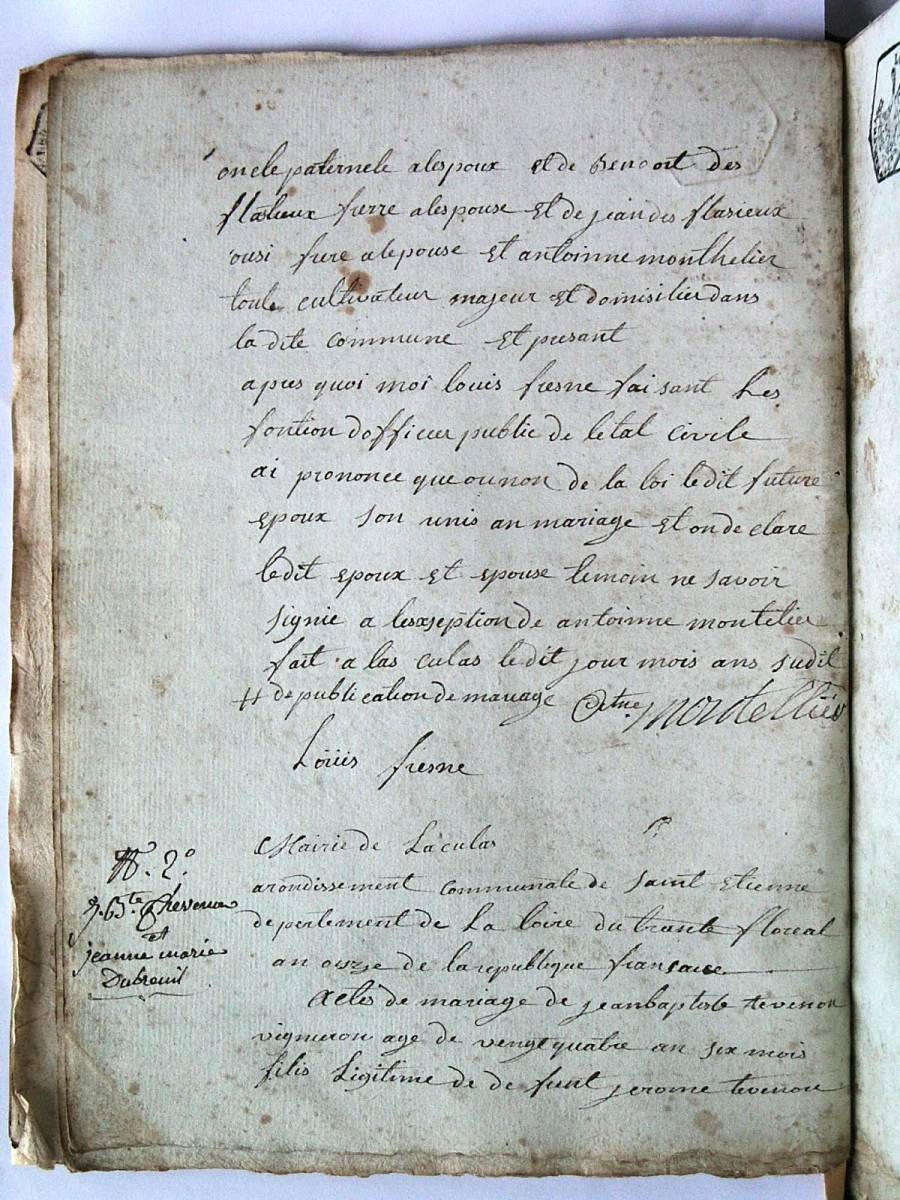 oncle paternele a lespoux et de Benoort des
flasieux frerre a lespouse et de jean des flasieux
ousi frere a lepouse et antoinne monthelier
toule cultivateur majeur et domisilier dans
la dite commune et presant
apres quoi moi louis fresne faisant Les
fontion dofficier public de letat civile
ai prononce que ou non de la loi ledit future
epoux son unis an mariage et on de clare
ledit epoux et epouse temoin ne savoir
signie a lesxseption de antoinne montelier
fait a las culas ledit jour mois ans sudit
# de publication de mariage Antne. montellier
Loüis fresne
Mairie de Laculas
N°. 2°.
J. Bte. Thevenon
et
jeanne marie
Dubreuil
arondissement communale de saint Etienne
deperlement de La loire du trante floreal
an onze de la republique fransaise
Actes de mariage de jean baptiste tevenon
vigneron age de vengt quatre an six mois
filis Ligitime de de funt jerome tevenon